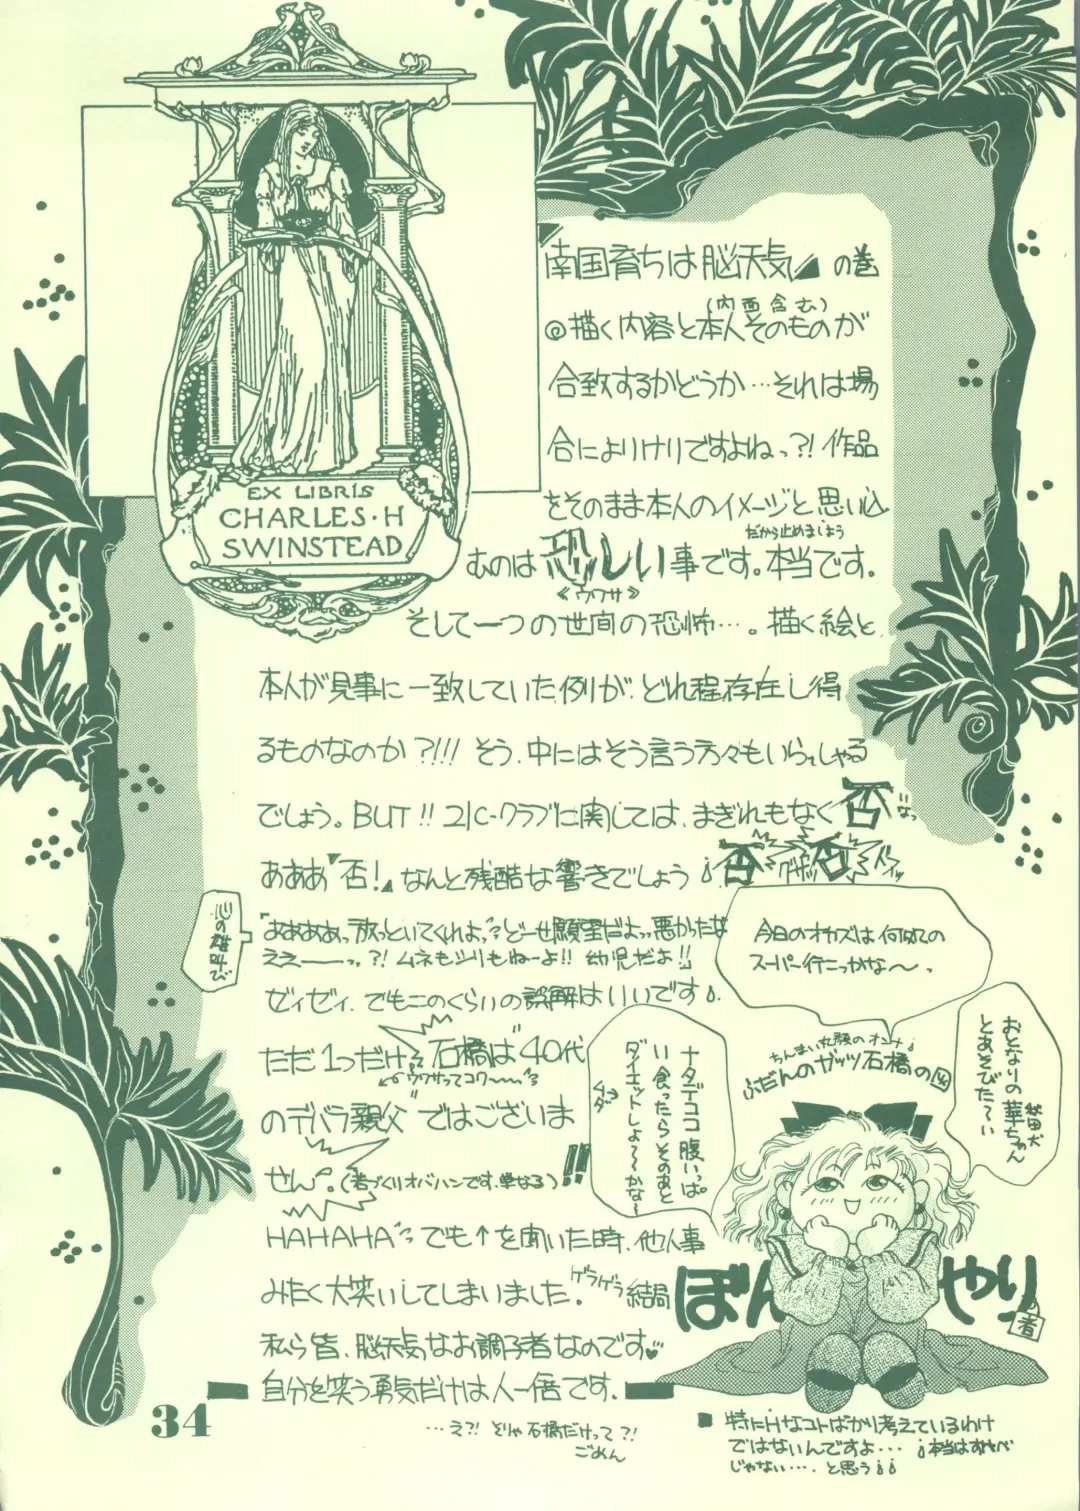 EX LIBRIS
CHARLES・H
SWINSTEAD
南国育ちは脳天気 の巻
(内面含む)
◎描く内容と本人そのものが
合致するかどうか…それは場
合によりけりですよねっ?! 作品
をそのまま本人のイメージと思い込
だから止めましょう
むのは恐しい事です。本当です。
《ウワサ》
そして一つの世間の恐怖…。描く絵と
本人が見事に一致していた例が、どれ程存在し得
るものなのか?!!! そう、中にはそう言う方々もいらっしゃる
でしょう。BUT!! ユバ-クラブに関しては、まぎれもなく否
あああ『否!』なんと残酷な響きでしょう
否
心の雄叫び
『ああああっ放っといてくれよっ?どーせ願望だよっ悪かったな
ええーーっ?! ムネもシリもねーよ!! 幼児だよ!!
ゼィゼィ、でもこのくらいの誤解はいいです
ただ1つだけ 石橋は“40代
ウワサってコワ〜〜
のデバラ親父”ではございま
せん。(若づくりオバハンです、単なる)!!
HAHAHA でも↑を聞いた時、他人事
みたく大笑いしてしまいました。ゲラゲラ 結局
私ら皆、脳天気なお調子者なのです♥
自分を笑う勇気だけは人一倍です。
…え?! そりゃ石橋だけって?!
ごめん
今日のオカズは何始めの
スーパー行こっかな〜。
ちんまい丸顔のオンナ
ふだんのガッツ石橋の図
おとなりの華ちゃん
秋田犬
とあそびた〜い
ナタデココ腹いっぱ
い食ったらそのあと
ダイエットしよ〜〜かな〜
ムダ
ぼんやり
の者
■ 特にHなコトばかり考えているわけ
ではないんですよ… 本当はすけべ
じゃない…。と思う
34